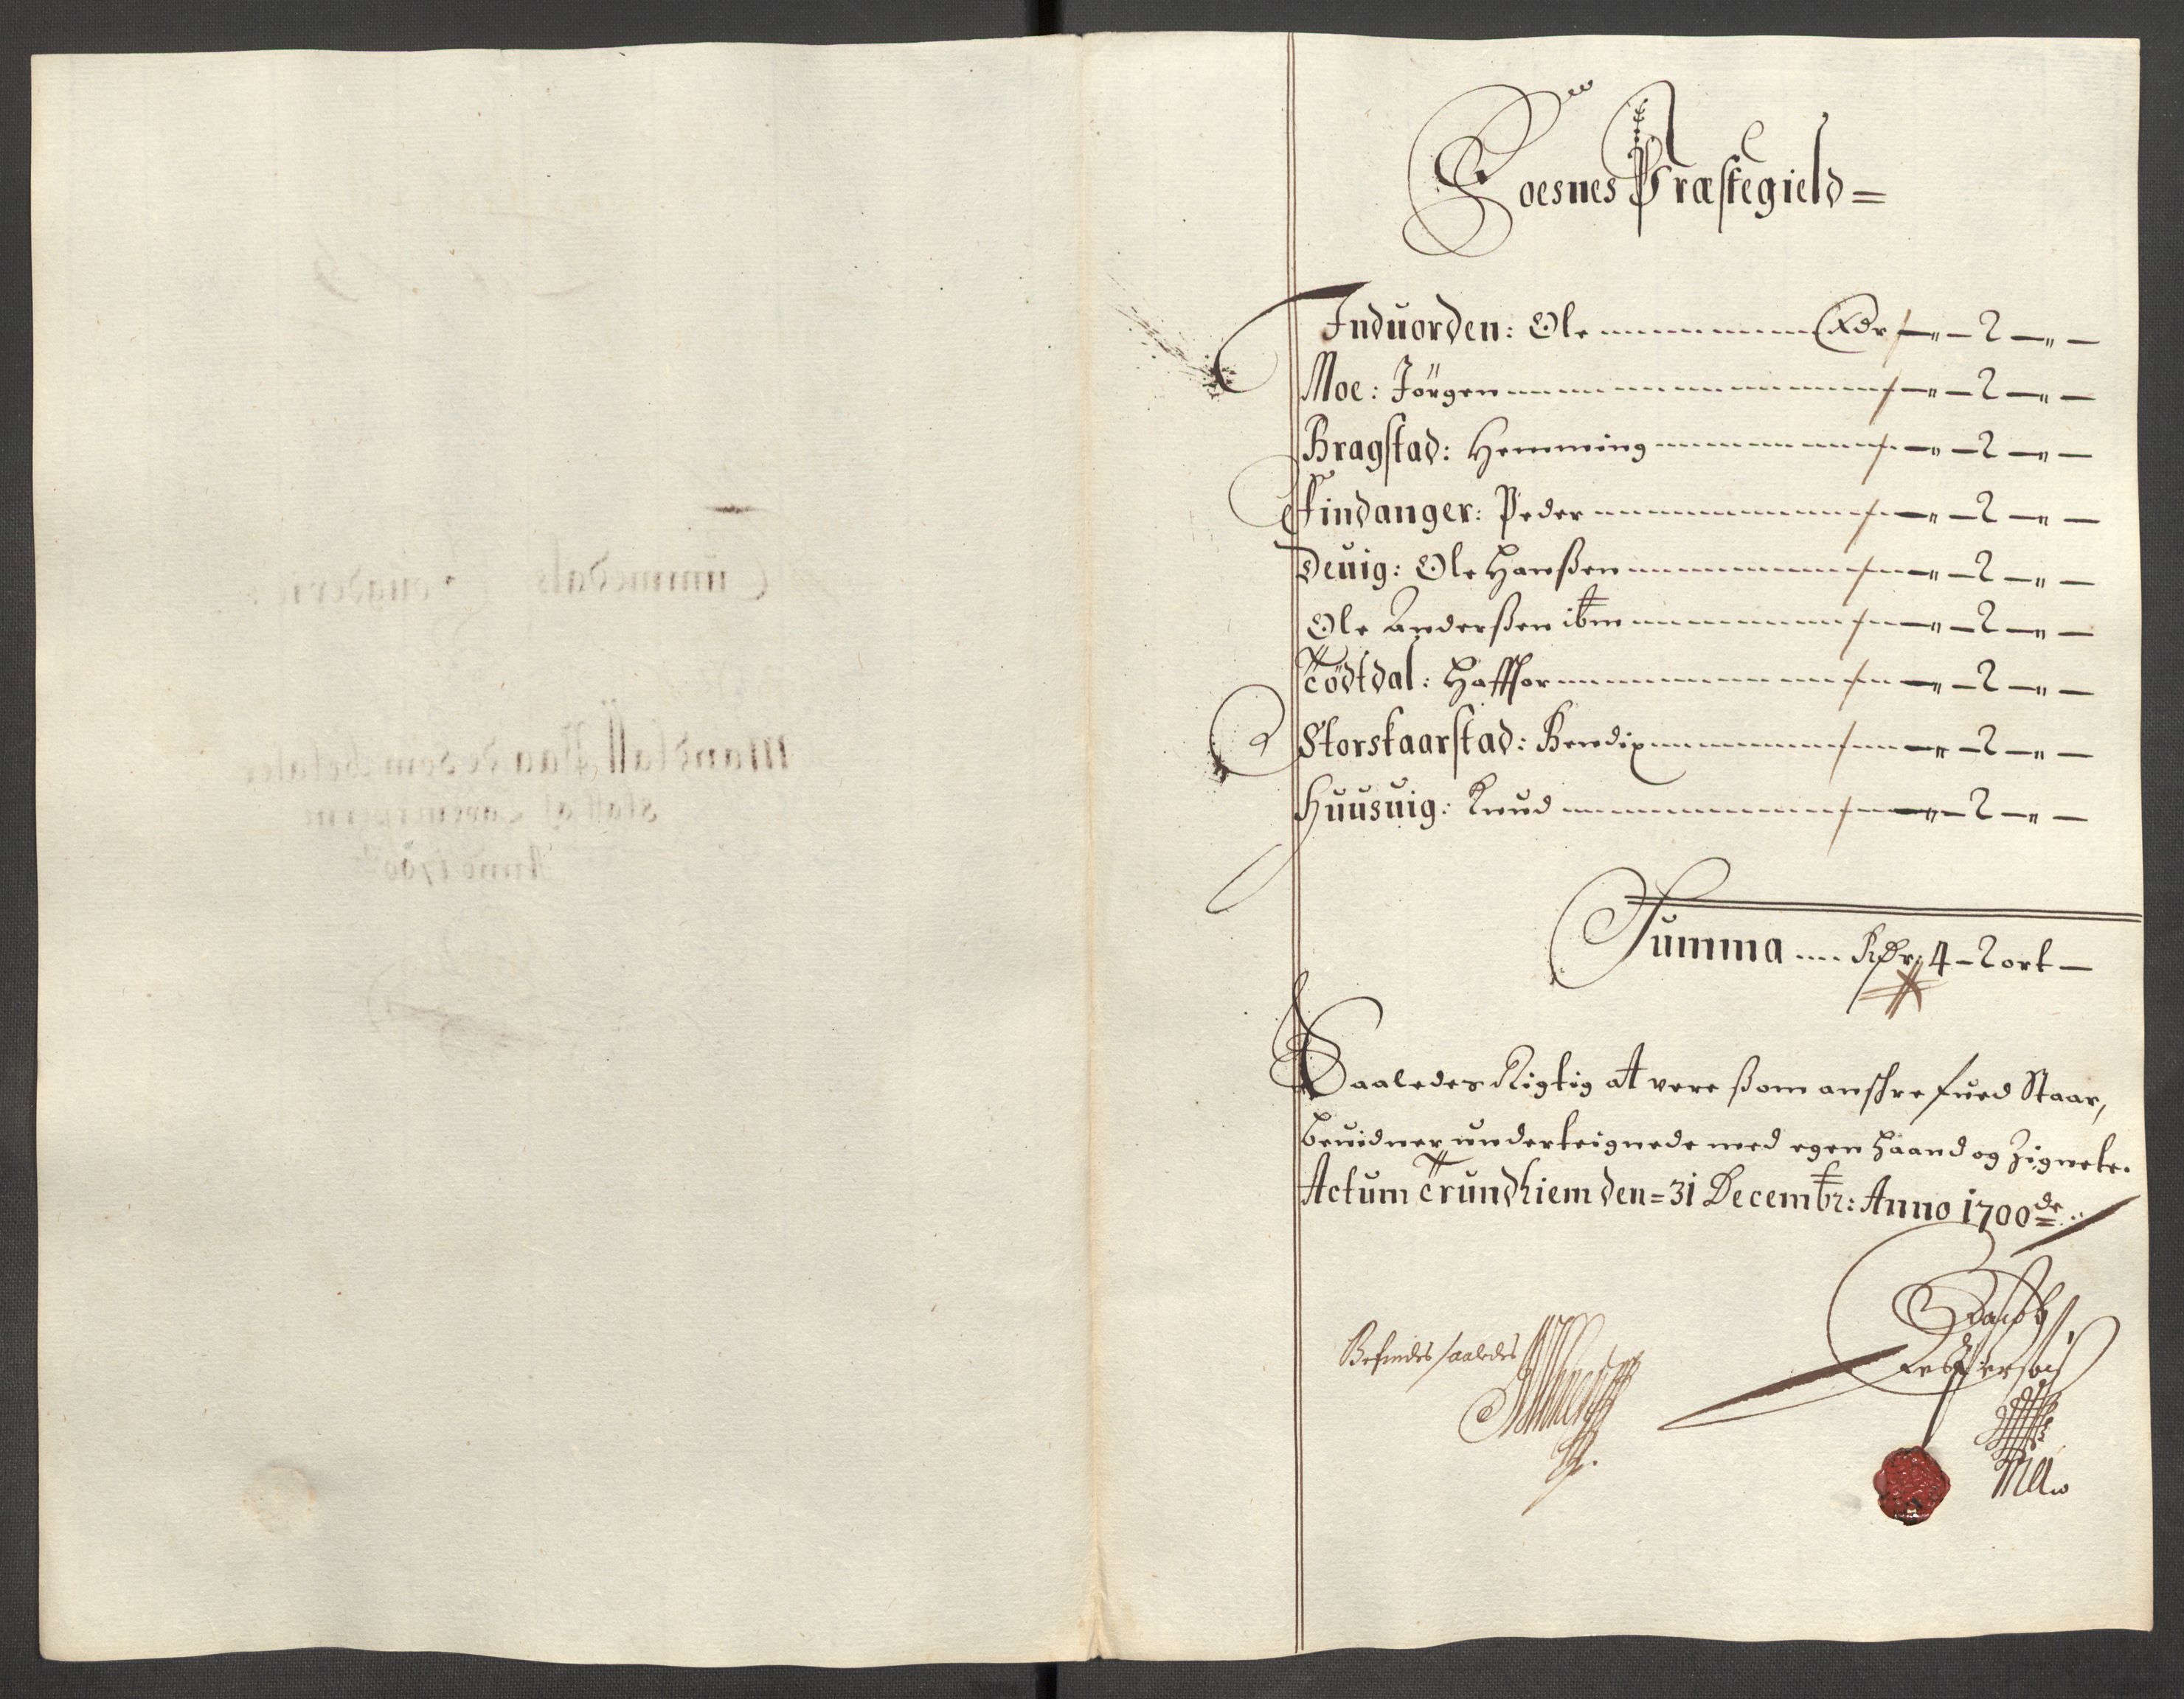 Foesnes Præstegield =
Induorden: Ole Rdr - " - 2 - " -
Moe: Jörgen - " - 2 - " -
Bragstad: Hemming - " - 2 - " -
Findanger: Peder - " - 2 - " -
Deuig: Ole Hanßen - " - 2 - " -
Ole Anderßen ibm - " - 2 - " -
Tödtdal: Haffor - " - 2 - " -
Storskaarstad: Bendix - " - 2 - " -
Huusuig: Knud - " - 2 - " -
Summa .... Rdr 4 - 2 ort -
Saaledes Rigtig at være ßom anskrefued Staar,
beuidner underteignede med egen haand og Zignete.
Actum Trundhiem den = 31 Decembr: Anno 1700de
Befindes saaledes